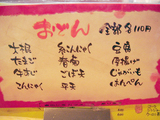 おでん 全部各110円
大根 糸こんにゃく 豆腐
たまご 春菊 厚揚げ
牛すじ ごぼ天 じゃがいも
こんにゃく 平天 はんぺん